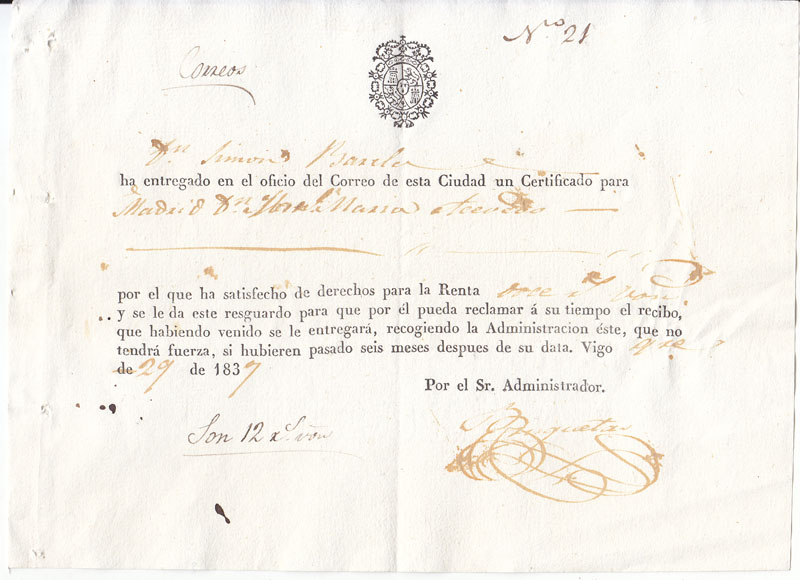 Nº 21
Correos
Dn. Simon
ha entregado en el oficio del Correo de esta Ciudad un Certificado para
Madrid Dn. Maria
por el que ha satisfecho de derechos para la Renta
y se le da este resguardo para que por él pueda reclamar á su tiempo el recibo,
que habiendo venido se le entregará, recogiendo la Administracion éste, que no
tendrá fuerza, si hubieren pasado seis meses despues de su data. Vigo
de 29 de 1837
Por el Sr. Administrador.
Son 12 rs. von